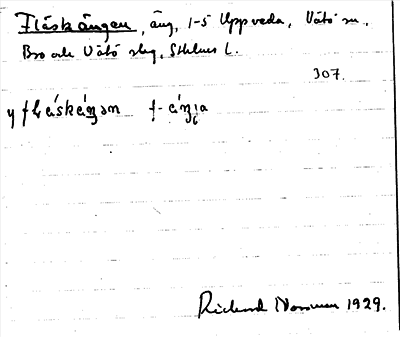 Fläskängen, äng, 1-5 Uppveda, Vätö sn.
Bro och Vätö skg, Sthlms L.
307.
y flǽskǽŋən f-ǽŋɩa
Rickard Norman 1929.